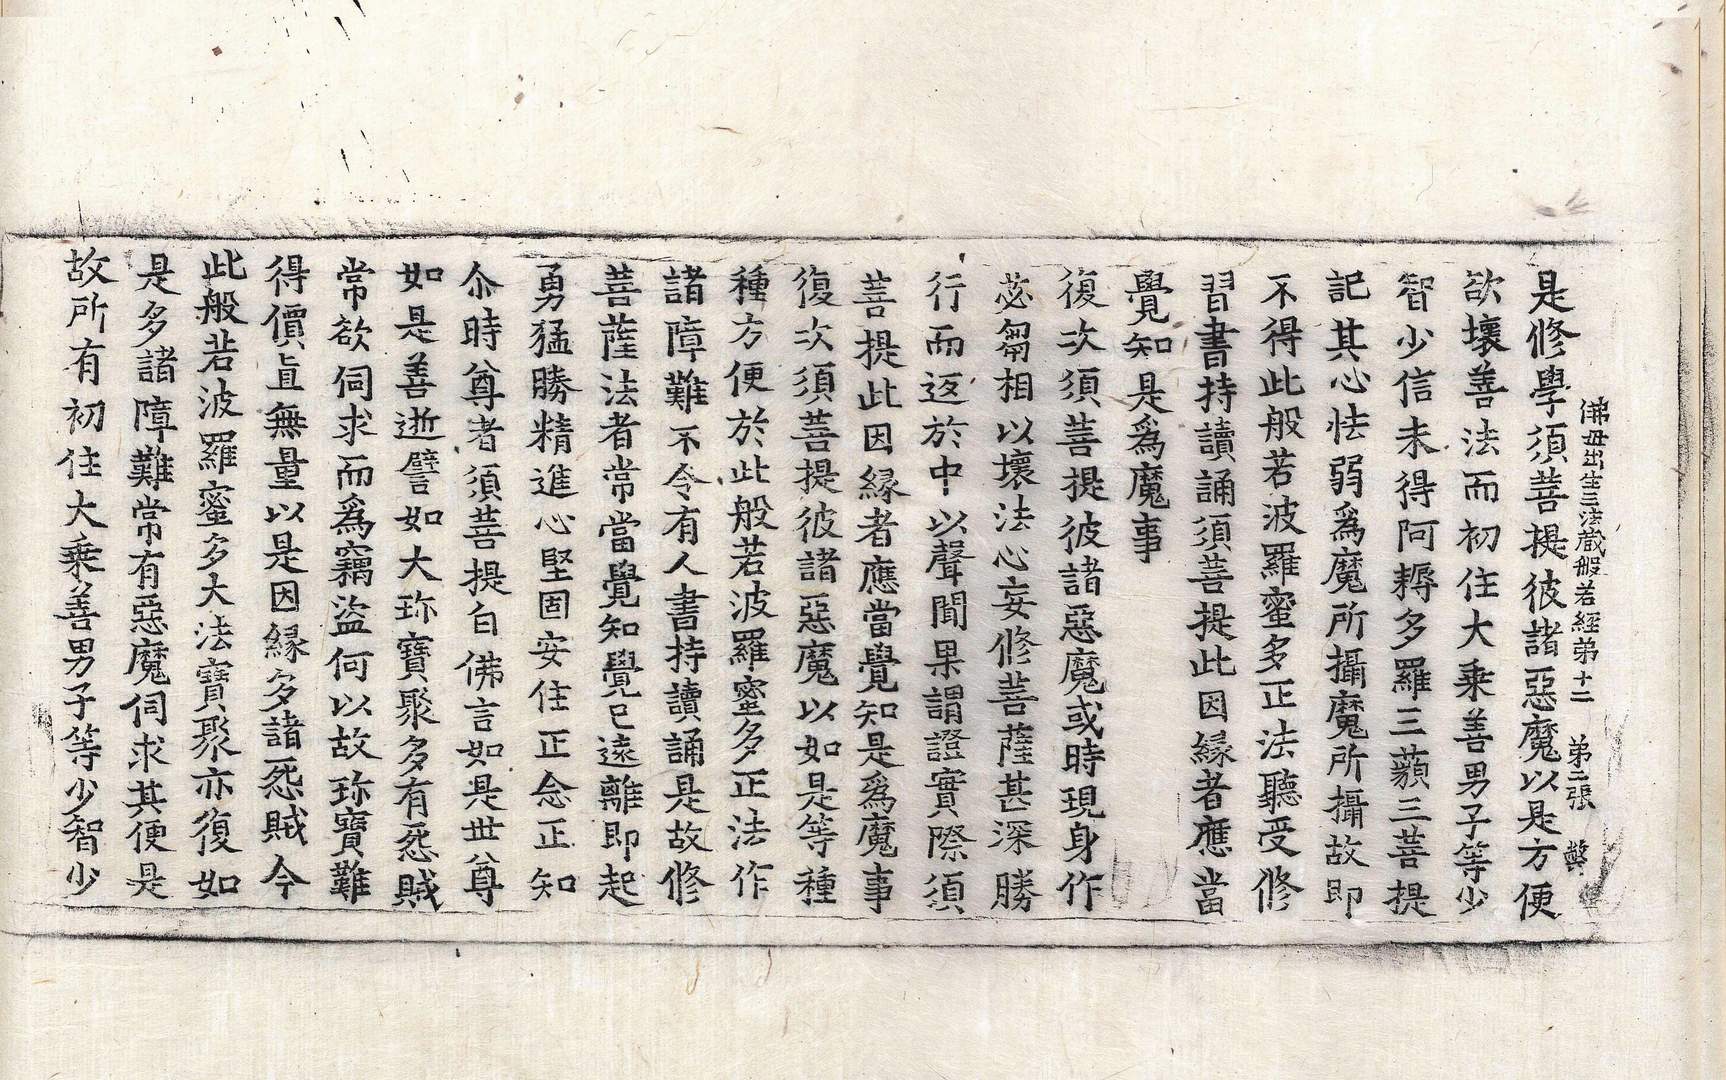 佛母出生三法藏般若經第十二 第二張
是修學須菩提彼諸惡魔以是方便
欲壞善法而初住大乗善男子等少
智少信未得阿耨多羅三藐三菩提
記其心怯弱爲魔所攝魔所攝故即
不得此般若波羅蜜多正法聽受修
習書持讀誦須菩提此因縁者應當
覺知是爲魔事
復次須菩提彼諸惡魔或時現身作
苾芻相以壞法心妄修菩薩甚深勝
行而返於中以聲聞果謂證實際須
菩提此因縁者應當覺知是爲魔事
復次須菩提彼諸惡魔以如是等種
種方便於此般若波羅蜜多正法作
諸障難不令有人書持讀誦是故修
菩薩法者常當覺知覺已遠離即起
勇猛勝精進心堅固安住正念正知
尒時尊者須菩提白佛言如是世尊
如是善逝譬如大珎寶聚多有㤪賊
常欲伺求而爲竊盜何以故珎寶難
得價直無量以是因縁多諸㤪賊今
此般若波羅蜜多大法寶聚亦復如
是多諸障難常有惡魔伺求其便是
故所有初住大乗善男子等少智少